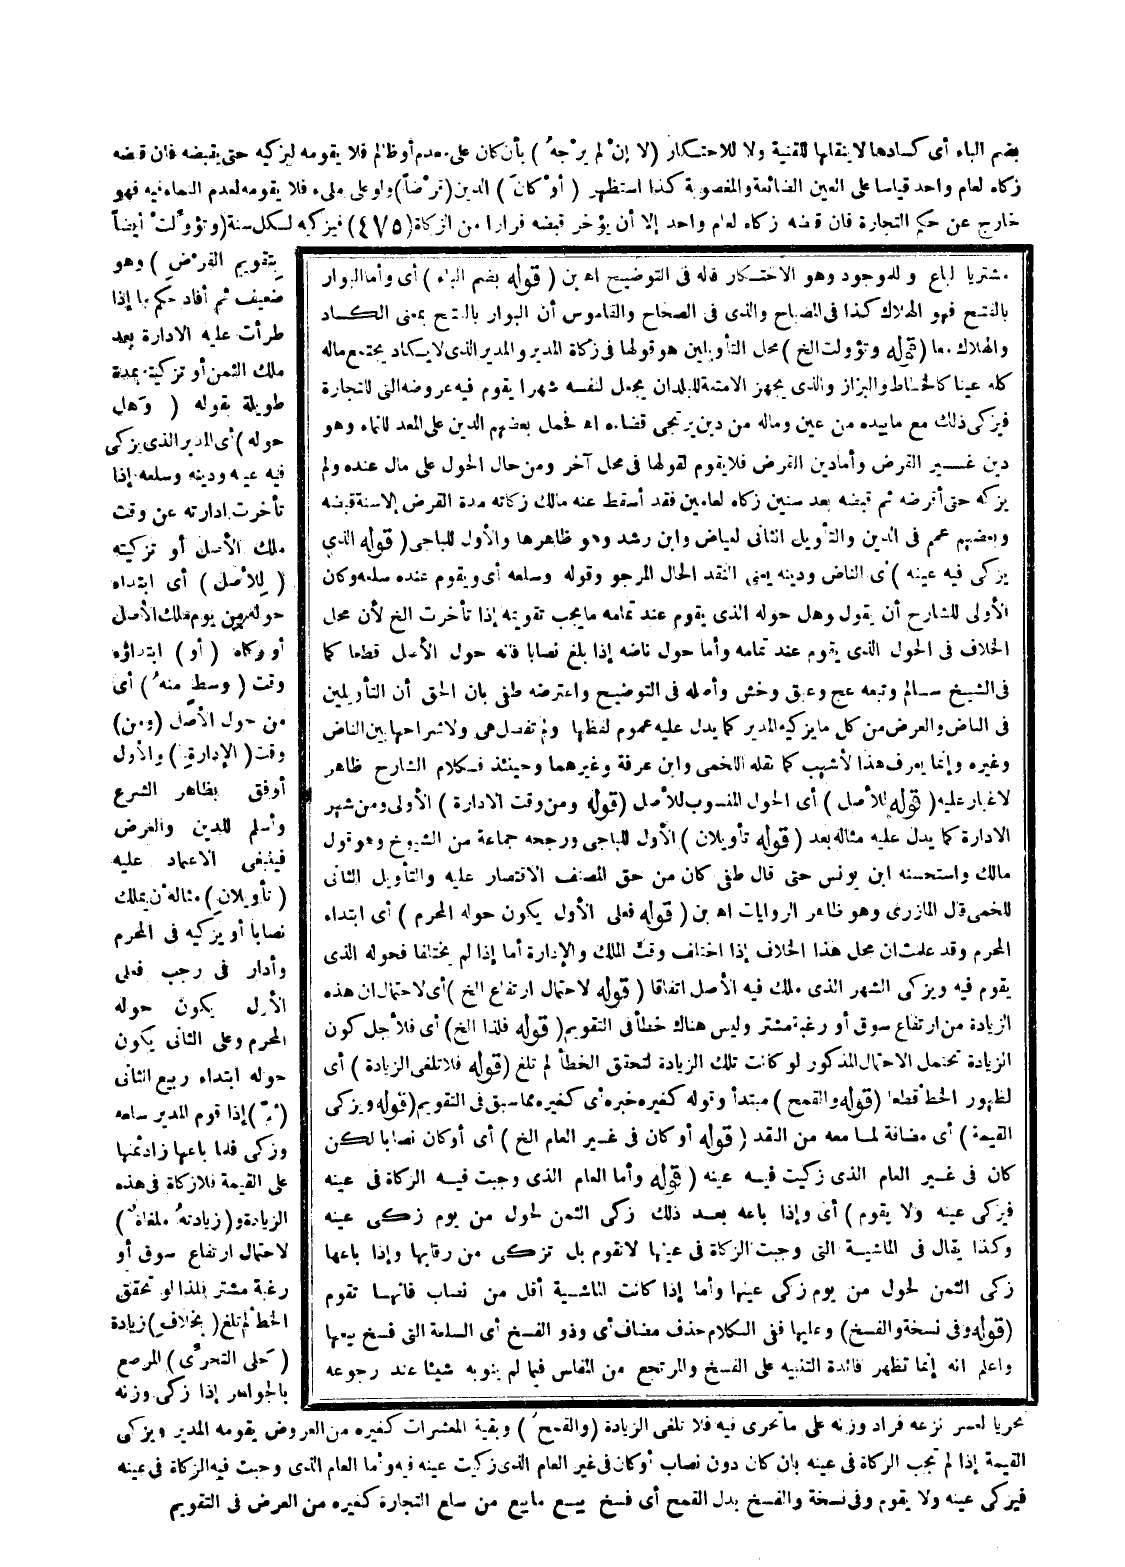 بضم الباء أى كسادها لا ينقلها للقنية ولا للاحتكار (لا إن لم يرجه ) بأن كان على معدم أو ظالم فلا يقومه ليزكيه حتى يقبضه فان قبضه
زكاه لعام واحد قياسا على العين الضائعة والمغصوبة كذا استظهر ( أو كان ) الدين (قرضا) ولو على ملىء فلا يقومه لعدم النماء فيه فهو
خارج عن حكم التجارة فان قبضه زكاه لعام واحد إلا أن يؤخر قبضه فرارا من الزكاة (٤٧٥) فيزكيه لكل سنة (وتؤولت أيضاً
بتقويم القرض ) وهو
ضعيف ثم أفاد حكم ما إذا
طرأت عليه الادارة بعد
ملك الثمن أو تزكيته بمدة
طويلة بقوله ( وهل
حوله ) أى المدير الذى يزكى
فيه عينه ودينه وسلعه إذا
تأخرت ادارته عن وقت
ملك الأصل أو تزكيته
( للأصل ) أى ابتداء
حوله من يوم ملك الأصل
أو زكاه ( أو ) ابتداؤه
وقت ( وسط منه ) أى
من حول الأصل (ومن)
وقت ( الإدارة ) والأول
أوفق بظاهر الشرع
وأسلم للدين والعرض
فينبغى الاعتماد عليه
( تأويلان ) مثاله أن يملك
نصابا أو يزكيه فى المحرم
وأدار فى رجب فعلى
الأول يكون حوله
المحرم وعلى الثانى يكون
حوله ابتداء ربيع الثانى
( ثم ) إذا قوم المدير سلعه
وزكى فلما باعها زاد ثمنها
على القيمة فلا زكاة فى هذه
الزيادة و (زيادته ملغاة )
لاحتمال ارتفاع سوق أو
رغبة مشتر فلذا لو تحقق
الخطأ لم تلغ ( بخلاف ) زيادة
( حلى التحرى ) المرصع
بالجواهر إذا زكى وزنه
تحريا لعسر نزعه فزاد وزنه على ما تحرى فيه فلا تلغى الزيادة (والقمح ) وبقية المعشرات كغيره من العروض يقومه المدير ويزكى
القيمة إذا لم تجب الزكاة فى عينه بان كان دون نصاب أو كان فى غير العام الذى زكيت عينه فيه وأما العام الذى وجبت فيه الزكاة فى عينه
فيزكى عينه ولا يقوم وفى نسخة والفسخ بدل القمح أى فسخ بيع ما بيع من سلع التجارة كغيره من العرض فى التقويم
مشتريا لباع و للموجود وهو الاحتكار قاله فى التوضيح اه بن ( قوله بضم الباء ) أى وأما البوار
بالفتح فهو الهلاك كذا فى المصباح والذى فى الصحاح والقاموس أن البوار بالفتح بمعنى الكساد
والهلاك معا ( قوله وتؤولت الخ ) محل التأويلين هو قولها فى زكاة المدير والمدير الذى لا يكاد يجتمع ماله
كله عينا كالحناط والبزاز والذى يجهز الامتعة للبلدان يجعل لنفسه شهرا يقوم فيه عروضه التى للتجارة
فيزكى ذلك مع ما بيده من عين وماله من دين يرتجى قضاءه اه فحمل بعضهم الدين على المعد للنماء وهو
دين غير القرض وأما دين القرض فلا يقوم لقولها فى محل آخر ومن حال الحول على مال عنده ولم
يزكه حتى أقرضه ثم قبضه بعد سنين زكاه لعامين فقد أسقط عنه مالك زكاته مدة القرض إلا سنة قبضه
وبعضهم عمم فى الدين والتأويل الثانى لعياض وابن رشد وهو ظاهرها والأول للباجى ( قوله الذى
يزكى فيه عينه ) أى الناض ودينه يعنى النقد الحال المرجو وقوله وسلعه أى ويقوم عنده سلعه وكان
الأولى للشارح أن يقول وهل حوله الذى يقوم عند تمامه ما يجب تقويمه إذا تأخرت الخ لأن محل
الخلاف فى الحول الذى يقوم عند تمامه وأما حول ناضه إذا بلغ نصابا فانه حول الأصل قطعا كما
فى الشيخ سالم وتبعه عج وعبق وخش وأصله فى التوضيح واعترضه طفى بان الحق أن التأويلين
فى الناض والعرض من كل ما يزكيه المدير كما يدل عليه عموم لفظها ولم تفصل هى ولا شراحها بين الناض
وغيره وإنما يعرف هذا لأشهب كما نقله اللخمى وابن عرفة وغيرهما وحينئذ فكلام الشارح ظاهر
لا غبار عليه ( قوله للأصل ) أى الحول المنسوب للأصل (قوله ومن وقت الادارة ) الأولى ومن شهر
الادارة كما يدل عليه مثاله بعد ( قوله تأويلان ) الأول للباجى ورجحه جماعة من الشيوخ وهو قول
مالك واستحسنه ابن يونس حتى قال طفى كان من حق المصنف الاقتصار عليه والتأويل الثانى
للخمى قال المازرى وهو ظاهر الروايات اه بن ( قوله فعلى الأول يكون حوله المحرم ) أى ابتداء
المحرم وقد علمت ان محل هذا الخلاف إذا اختلف وقت الملك والإدارة أما إذا لم يختلفا فحوله الذى
يقوم فيه ويزكى الشهر الذى ملك فيه الأصل اتفاقا ( قوله لاحتمال ارتفاع الخ ) أى لاحتمال ان هذه
الزيادة من ارتفاع سوق أو رغبة مشتر وليس هناك خطأ فى التقويم ( قوله فلذا الخ ) أى فلأجل كون
الزيادة تحتمل الاحتمال المذكور لو كانت تلك الزيادة لتحقق الخطأ لم تلغ (قوله فلا تلغى الزيادة ) أى
لظهور الخطأ قطعا (قوله والقمح ) مبتدأ وقوله كغيره خبره أى كغيره مما سبق فى التقويم (قوله ويزكى
القيمة ) أى مضافة لما معه من النقد ( قوله أو كان فى غير العام الخ ) أى أو كان نصابا لكن
كان فى غير العام الذى زكيت فيه عينه ( قوله وأما العام الذى وجبت فيه الزكاة فى عينه
فيزكى عينه ولا يقوم ) أى وإذا باعه بعد ذلك زكى الثمن لحول من يوم زكى عينه
وكذا يقال فى الماشية التى وجبت الزكاة فى عينها لا تقوم بل تزكى من رقابها وإذا باعها
زكى الثمن لحول من يوم زكى عينها وأما إذا كانت الماشية أقل من نصاب فانها تقوم
(قوله وفى نسخة والفسخ) وعليها ففى الكلام حذف مضاف أى وذو الفسخ أى السلعة التى فسخ بيعها
واعلم انه إنما تظهر فائدة التنبيه على الفسخ والمرتجع من المفلس فيما لم ينو به شيئا عند رجوعه